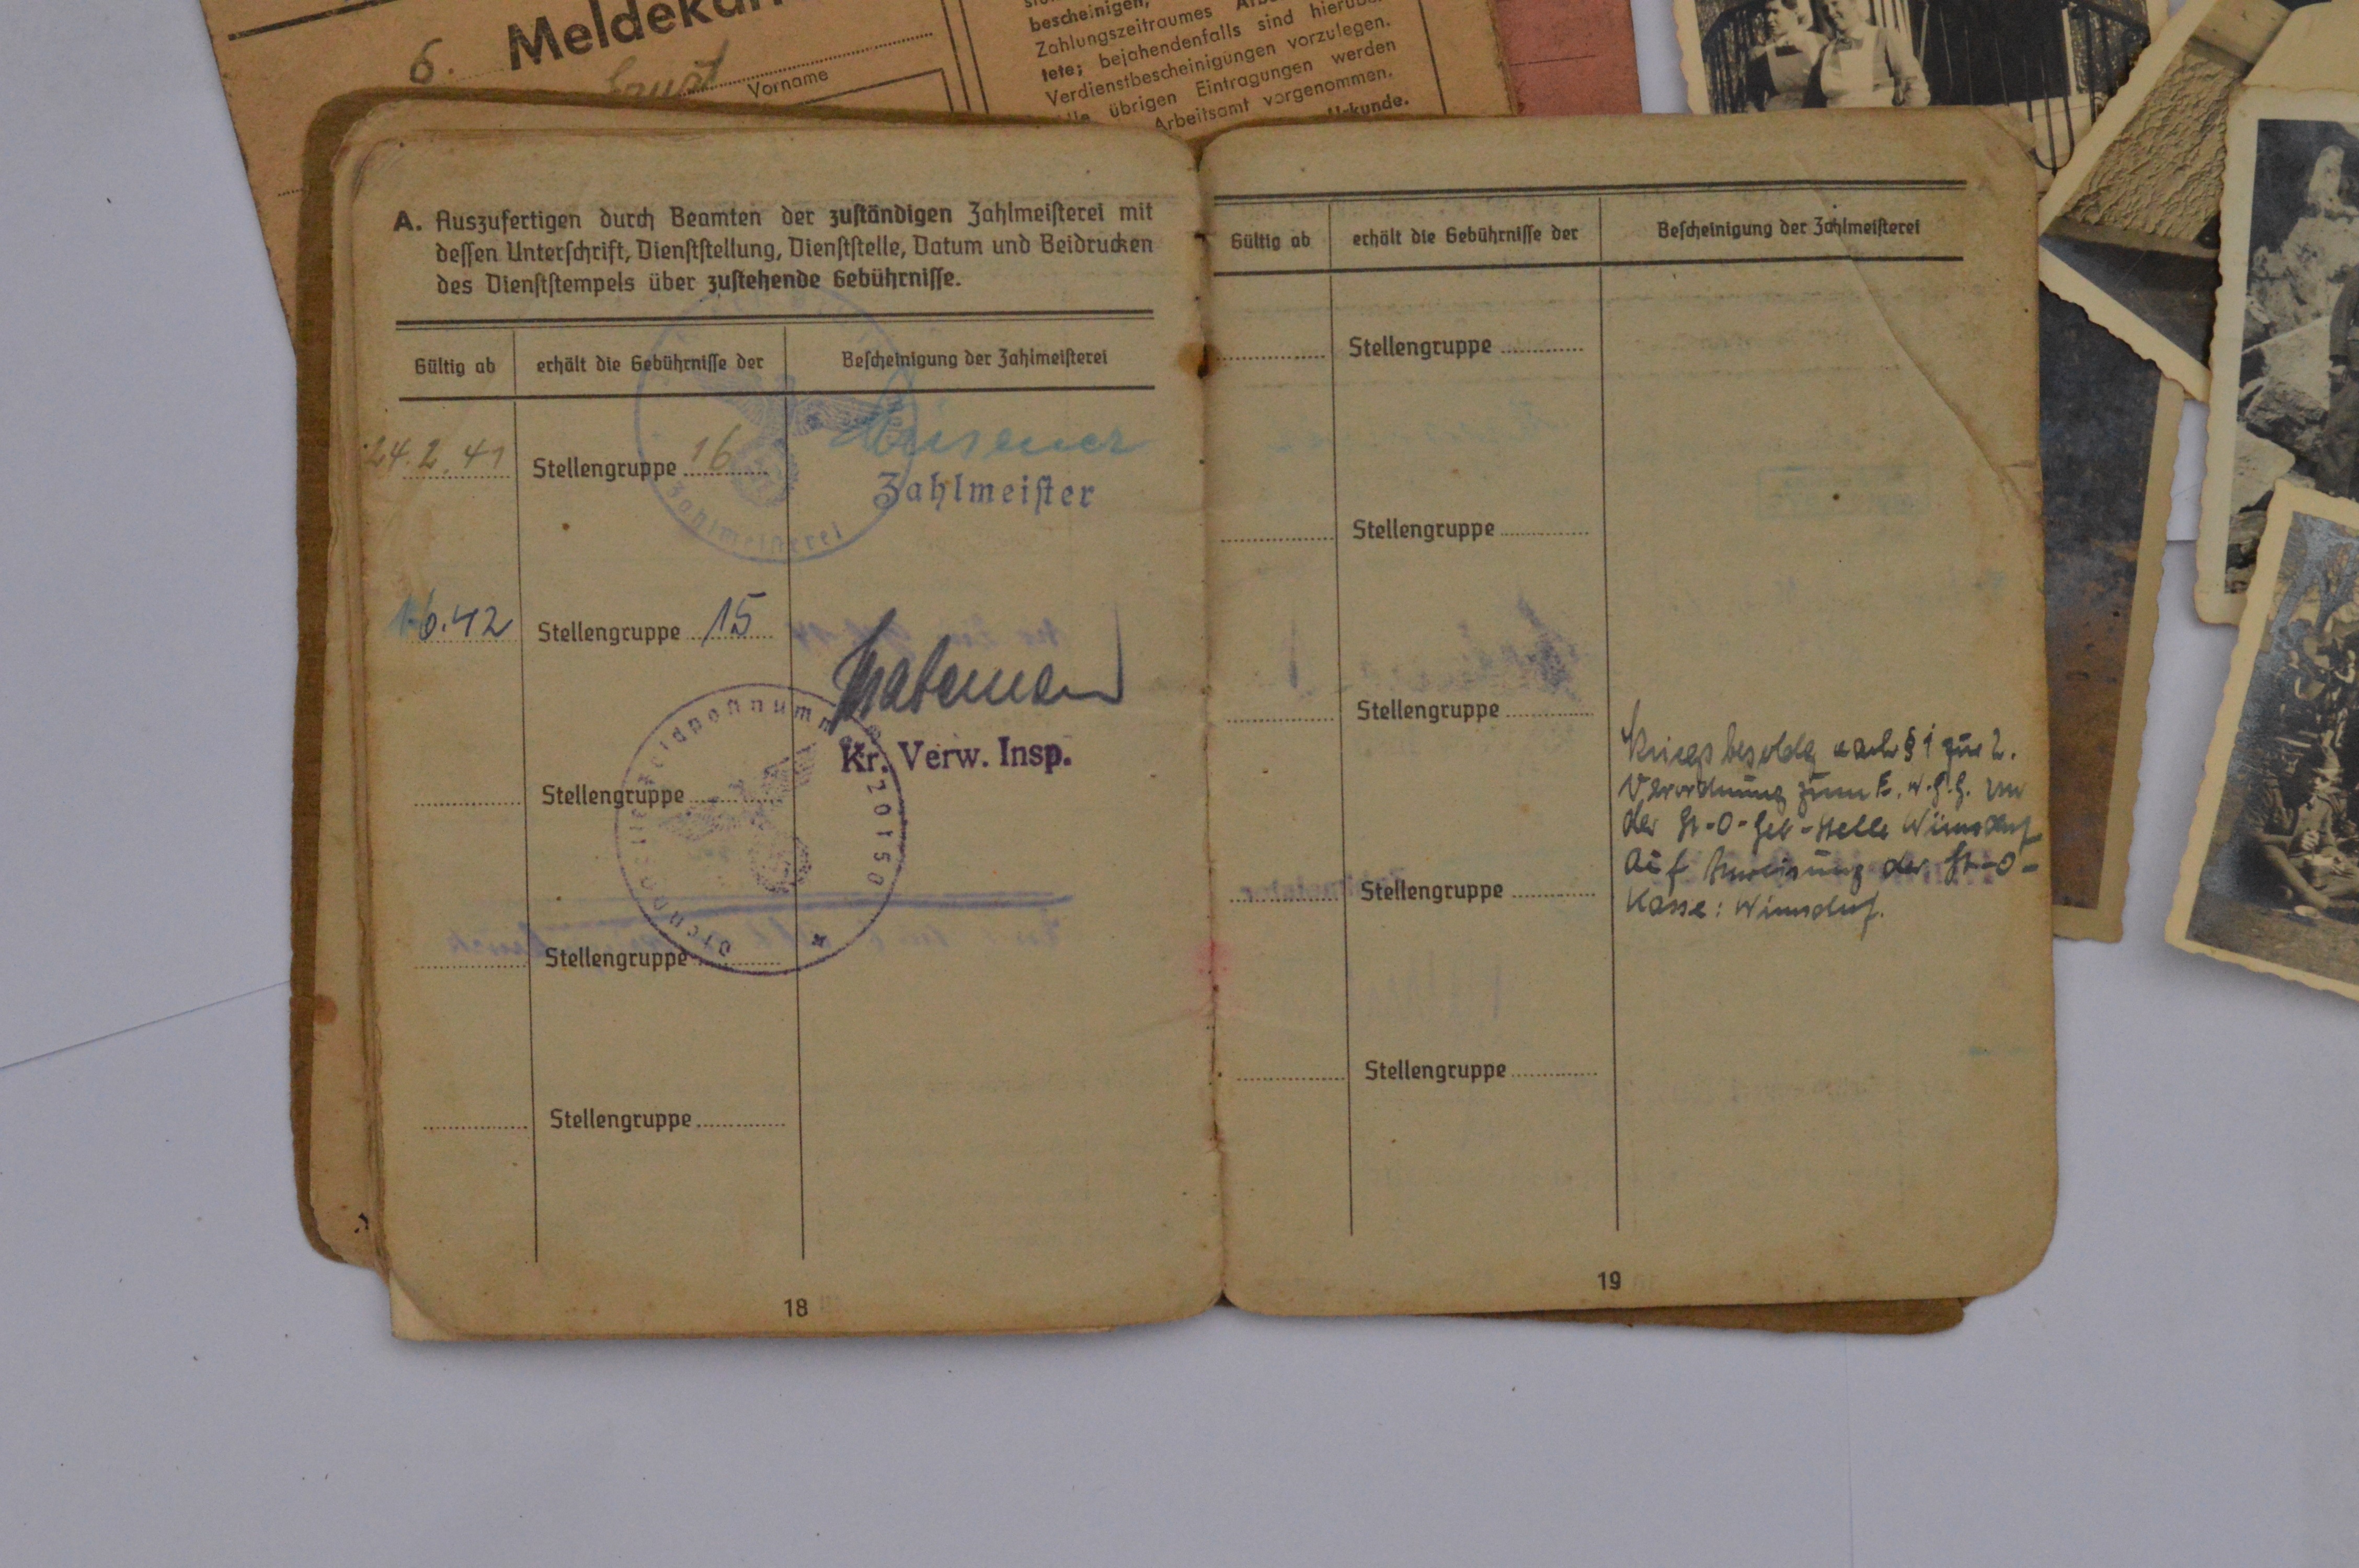 6. Meldekar
Ernst
Vorname
bescheinigen,
Zahlungszeitraumes
tete; bejahendenfalls sind hierüber
Verdienstbescheinigungen vorzulegen.
übrigen Eintragungen werden
Arbeitsamt vorgenommen.
Urkunde.
A. Auszufertigen durch Beamten der zuständigen Zahlmeisterei mit
dessen Unterschrift, Dienststellung, Dienststelle, Datum und Beidrucken
des Dienststempels über zustehende Gebührnisse.
Gültig ab erhält die Gebührnisse der Bescheinigung der Zahlmeisterei
24.2.41 Stellengruppe 16
Zahlmeister
Zahlmeisterei
1.6.42 Stellengruppe 15
Kr. Verw. Insp.
Dienststelle Feldpostnummer 20150
Stellengruppe
Stellengruppe
Stellengruppe
18
Gültig ab erhält die Gebührnisse der Bescheinigung der Zahlmeisterei
Stellengruppe
Stellengruppe
Stellengruppe
Stellengruppe
Stellengruppe
Kriegsbesoldg nach § 1 zur 2.
Verordnung zum E.W.G.G. von
der St-O-Geb-Stelle Wünsdorf
Auf Anweisung der St-O-
Kasse: Wünsdorf.
19